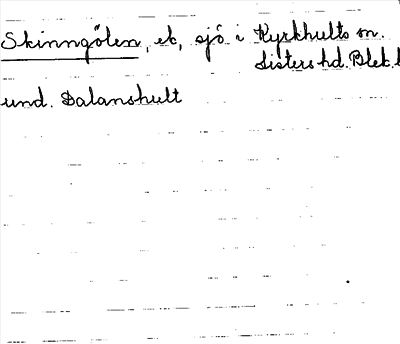 Skinngölen, ek, sjö i Kyrkhults sn.
Listers hd. Blek. l
und. Dalanshult